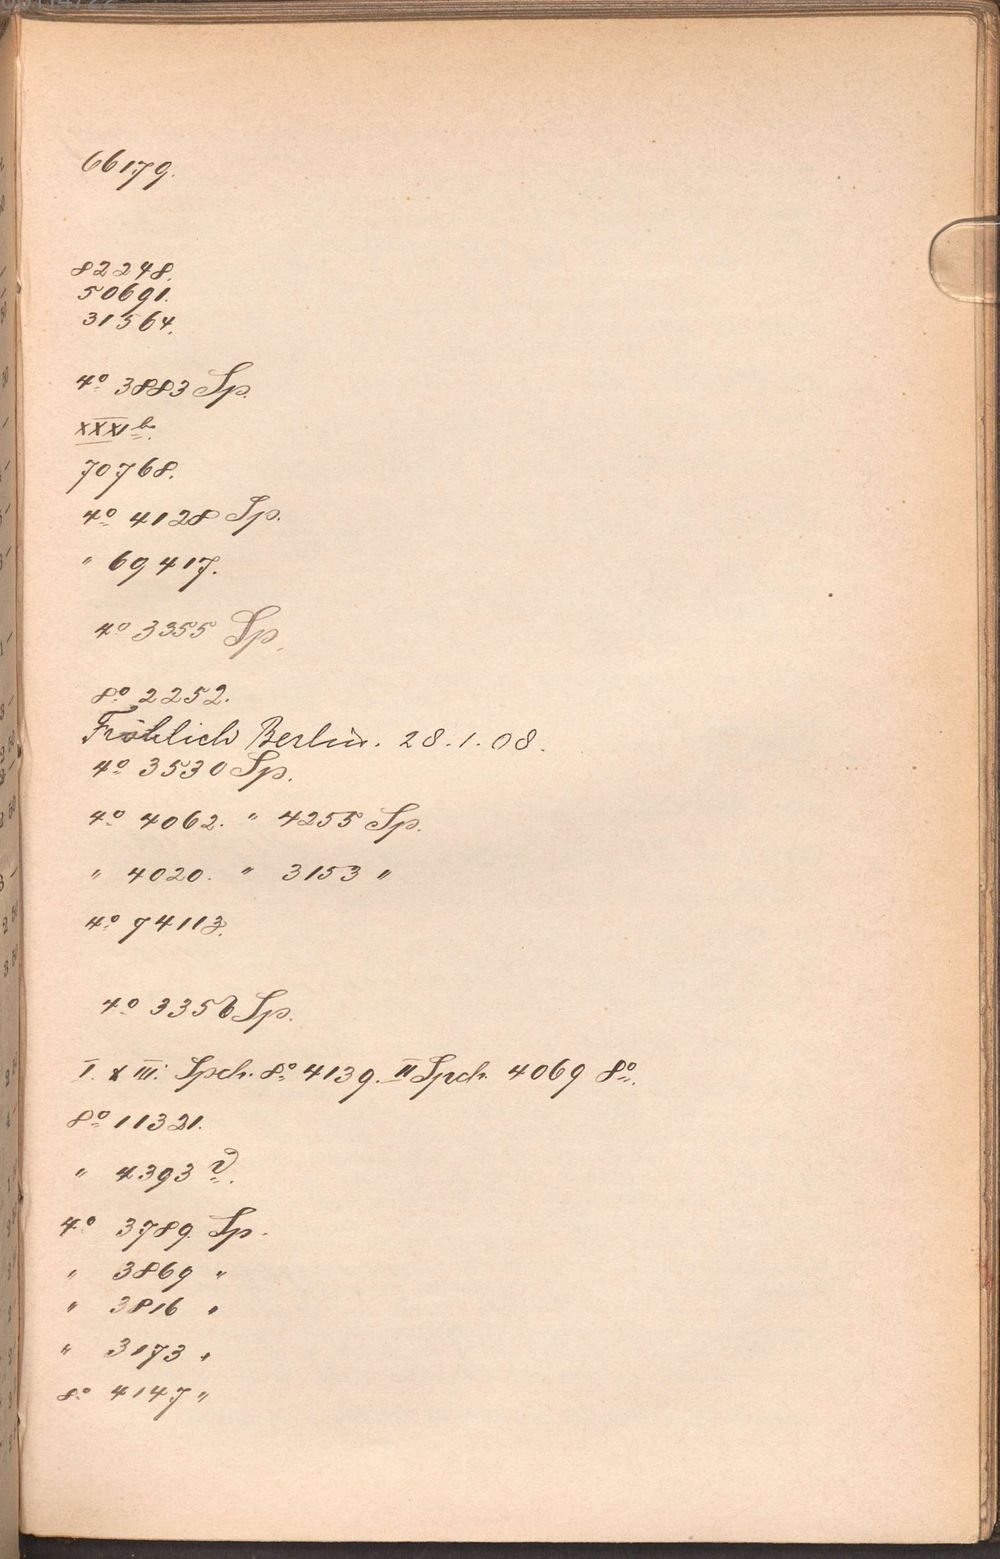 66179.
82248.
50691.
31564.
4º 3883 Sp.
XXXI b.
70768.
4º 4128 Sp.
" 69417.
4º 3355 Sp.
8º 2252.
Fröhlich Berlin. 28.1.08.
4º 3530 Sp.
4º 4062. " 4255 Sp.
" 4020. " 3153 "
4º 74113.
4º 3356 Sp.
I. & III. Spch. 8º 4139. II Spch. 4069 8º.
8º 11321.
" 4393 d.
4º 3789 Sp.
" 3869 "
" 3816 "
" 3173 "
8º 4147 "